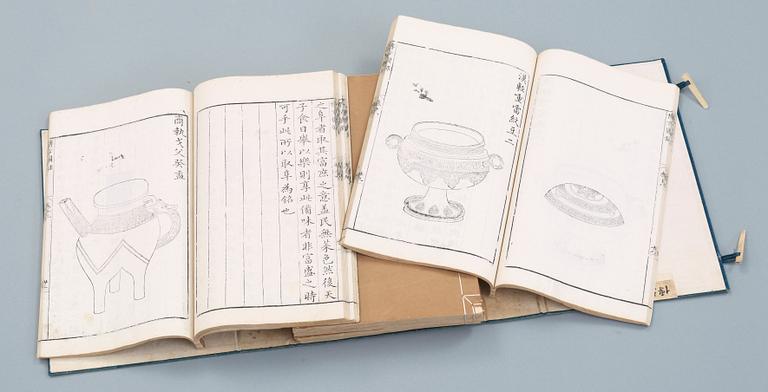 之阜者取其富庶之意蓋民無菜色然後天
子食日舉以樂則享此備味者非富盛之時
可乎此所以取阜為銘也
商執戈父癸盉
漢輕重雷紋豆二